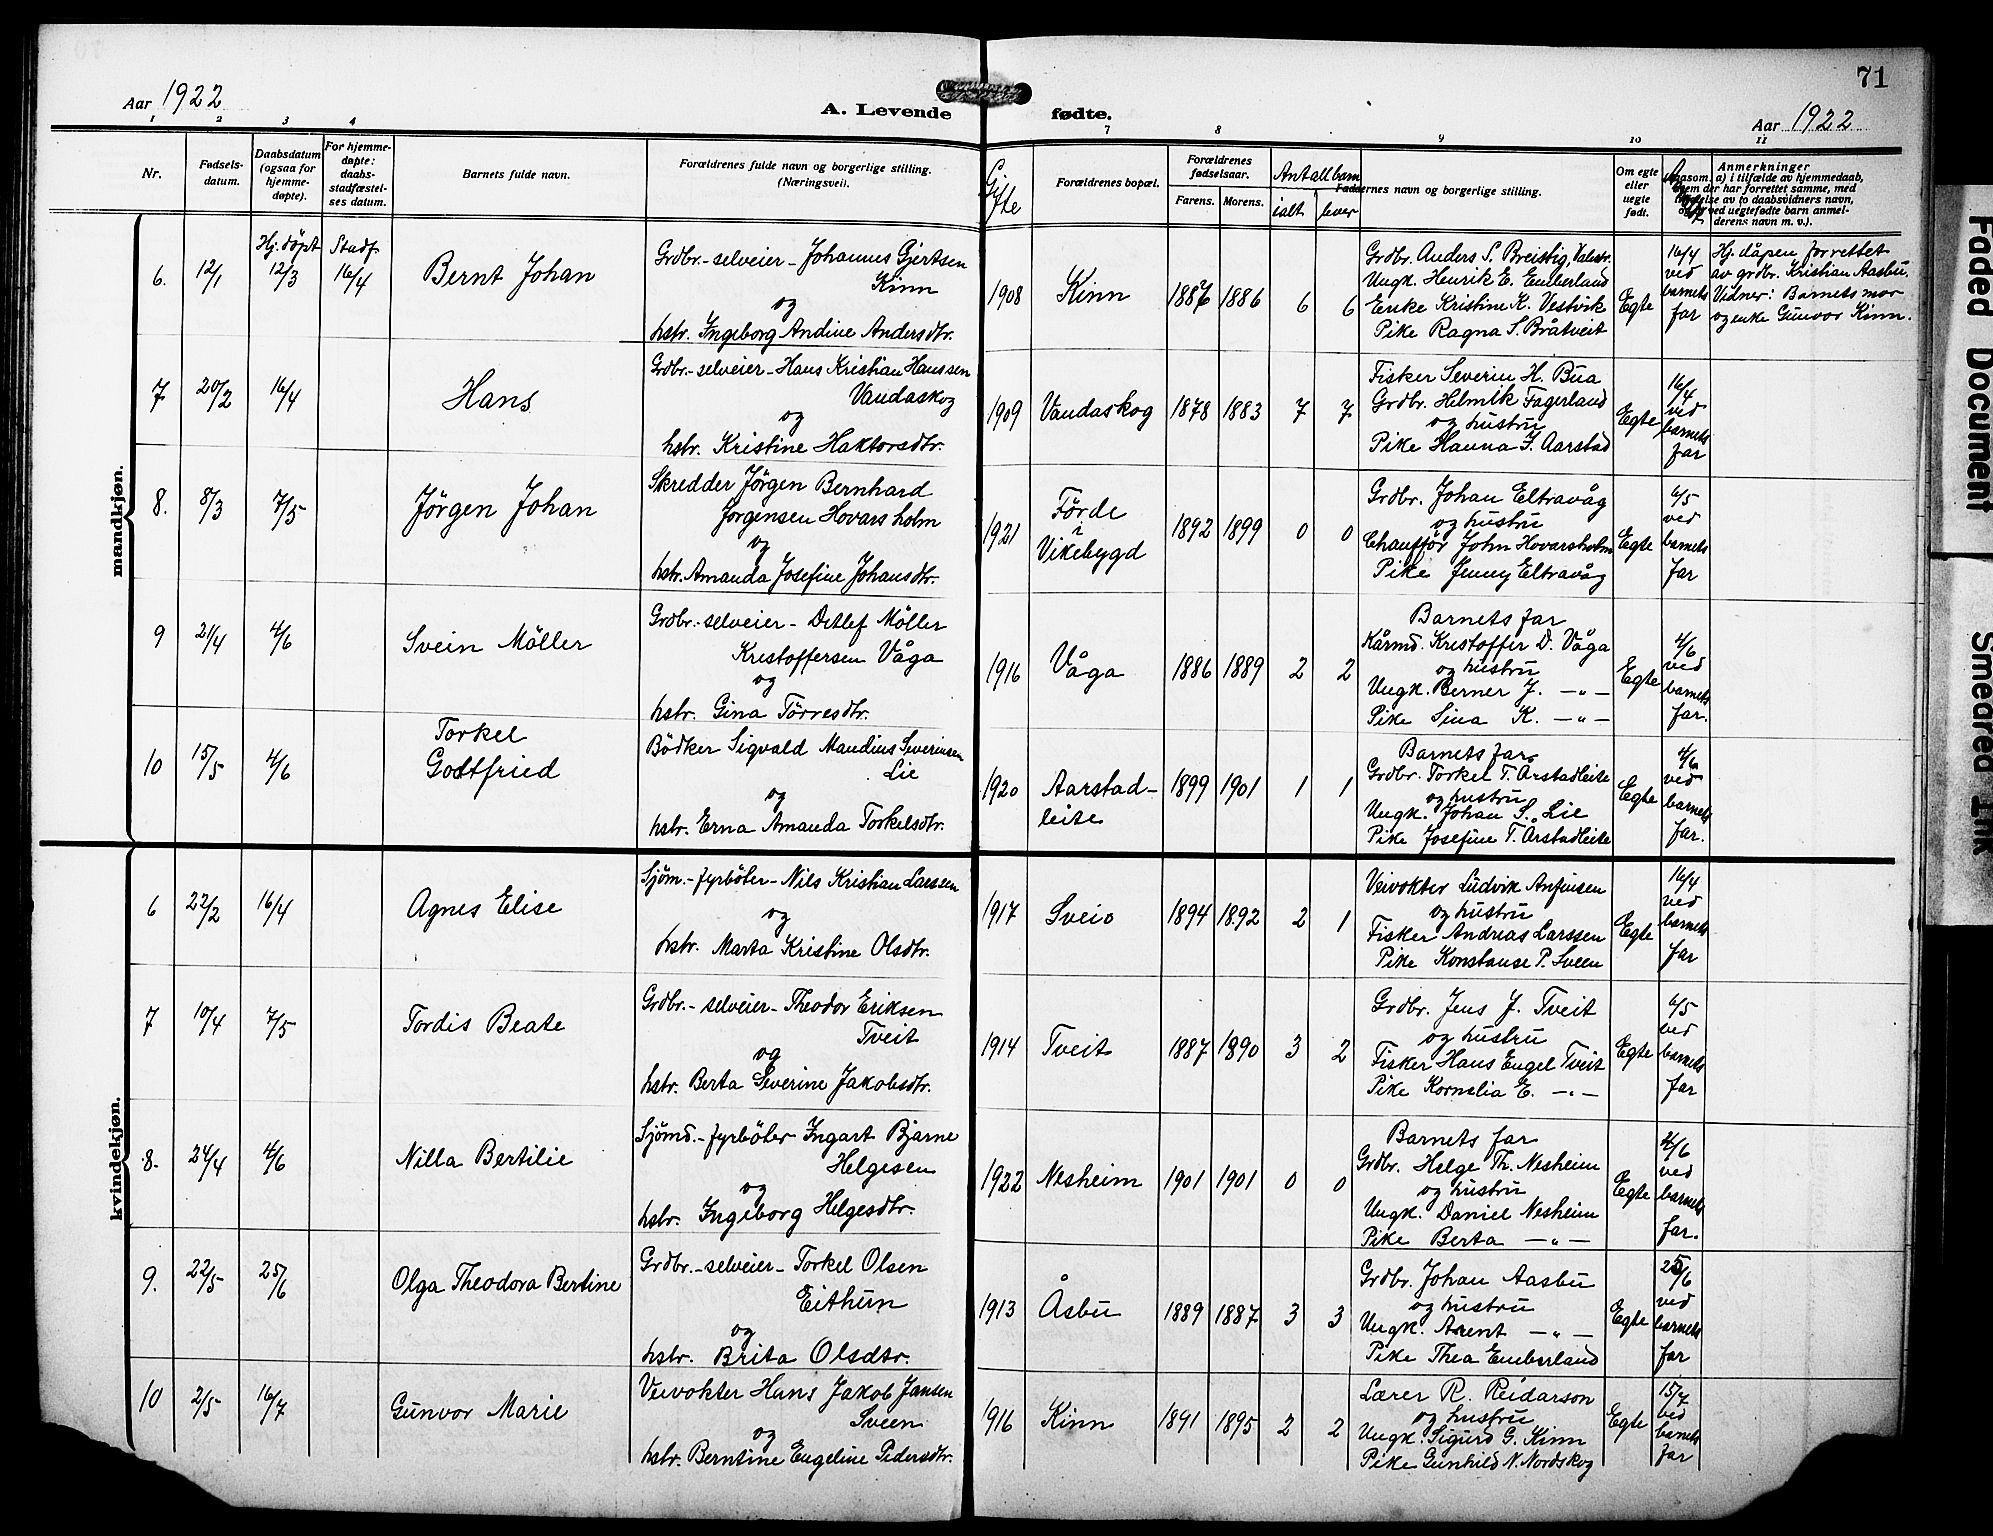 71
Aar 1922
A. Levende fødte.
Aar 1922
1 2 3 4 7 8 9 10 11
Nr.
Fødsels-
datum.
Daabsdatum
(ogsaa for
hjemme-
døpte).
For hjemme-
døpte:
daabs-
stadfæstel-
ses datum.
Barnets fulde navn.
Forældrenes fulde navn og borgerlige stilling.
(Næringsvei).
Gifte
Forældrenes bopæl.
Forældrenes
fødselsaar.
Farens. Morens.
Antall barn
ialt lever
Faddernes navn og borgerlige stilling.
Om egte
eller
uegte
født.
Anmerkninger
(saasom: a) i tilfælde av hjemmedaab,
hvem der har forrettet samme, med
av to daabsvidners navn,
ved uegtefødte barn anmel-
derens navn m. v.).
mandkjøn.
6. 12/1
Hj. døpt
12/3
Stadf.
16/4
Bernt Johan
Grdbr.-selveier- Johannes Gjertsen
Kinn
og
hstr. Ingeborg Andine Andersdtr.
1908 Kinn 1887 1886 6 6
Grdbr. Anders S. Breistig, Valestr.
Ungk. Henrik E. Emberland
Enke Kristine K. Vestvik
Pike Ragna S. Båtveit
Egte
16/4
ved
barnets
far
Hj. dåpen forrettet
av grdbr. Kristian Aasbu.
Vidner: Barnets mor
og enke Gunvor Kinn.
7 20/2 16/4 Hans
Grdbr.-selveier- Hans Kristian Hanssen
Vandaskog
og
hstr. Kristine Haktorsdtr.
1909 Vandaskog 1878 1883 7 7
Fisker Severin H. Bua
Grdbr. Helmik Fagerland
og hustru
Pike Hanna J. Aarstad
Egte
16/4
ved
barnets
far
8. 8/3 7/5 Jörgen Johan
Skredder Jörgen Bernhard
Jørgensen Hovarsholm
og
hstr. Amanda Josefine Johansdtr.
1921
Förde
i
Vikebygd
1892 1899 0 0
Grdbr. Johan Eltravåg
og hustru
Chauffør John Hovarsholm
Pike Jenny Eltravåg
Egte
6/5
ved
barnets
far
9 21/4 4/6 Svein Möller
Grdbr.-selveier- Detlef Möller
Kristoffersen Våga
og
hstr. Gina Tørresdtr.
1916 Våga 1886 1889 2 2
Barnets far
Kårmd. Kristoffer D. Våga
og hustru
Ungk. Berner J. -"-
Pike Sina K. -"-
Egte
4/6
ved
barnets
far.
10 15/5 4/6
Torkel
Gottfried
Bödker Sigvald Mandius Severinsen
Lie
og
hstr. Erna Amanda Torkelsdtr.
1920
Aarstad-
leite
1899 1901 1 1
Barnets far
Grdbr. Torkel T. Arstadleite
og hustru
Ungk. Johan S. Lie
Pike Josefine T. Arstadleite
Egte
4/6
ved
barnets
far.
kvindekjøn.
6 22/2 16/4 Agnes Elise
Sjöm.-fyrböter- Nils Kristian Larssen
og
hstr. Marta Kristine Olsdtr.
1917 Sveio 1894 1892 2 1
Veivokter Ludvik Anfinsen
og hustru
Fisker Andreas Larssen
Pike Konstanse P. Sveen
Egte
16/4
ved
barnets
far
7 10/4 7/5 Tordis Beate
Grdbr.-selveier- Theodor Eriksen
Tveit
og
hstr. Berta Severine Jakobsdtr.
1914 Tveit 1887 1890 3 2
Grdbr. Jens J. Tveit
og hustru
Fisker Hans Engel Tveit
Pike Kornelia E. -"-
Egte
6/5
ved
barnets
far
8. 24/4 4/6 Nilla Bertilie
Sjömd.-fyrböter Ingart Bjarne
Helgesen
og
hstr. Ingeborg Helgesdtr.
1922 Nesheim 1901 1901 0 0
Barnets far
Grdbr. Helge Th. Nesheim
og hustru
Ungk. Daniel Nesheim
Pike Berta -"-
Egte
4/6
ved
barnets
far.
9. 22/5 25/6 Olga Theodora Bertine
Grdbr.-selveier- Torkel Olsen
Eithun
og
hstr. Brita Olsdtr.
1913 Åsbu 1889 1887 3 3
Grdbr. Johan Aasbu
og hustru
Ungk. Arent -"-
Pike Thea Emberland
Egte
25/6
ved
barnets
far
10 2/5 16/7 Gunvor Marie
Veivokter Hans Jakob Jansen
Sveen
og
hstr. Berntine Engeline Pedersdtr.
1916 Kinn 1891 1895 2 2
Lærer R. Reidarson
og hustru
Ungk. Sigurd G. Kinn
Pike Gunhild N. Nordskog
Egte
15/7
ved
barnets
far
Faded Document
Smeared Ink